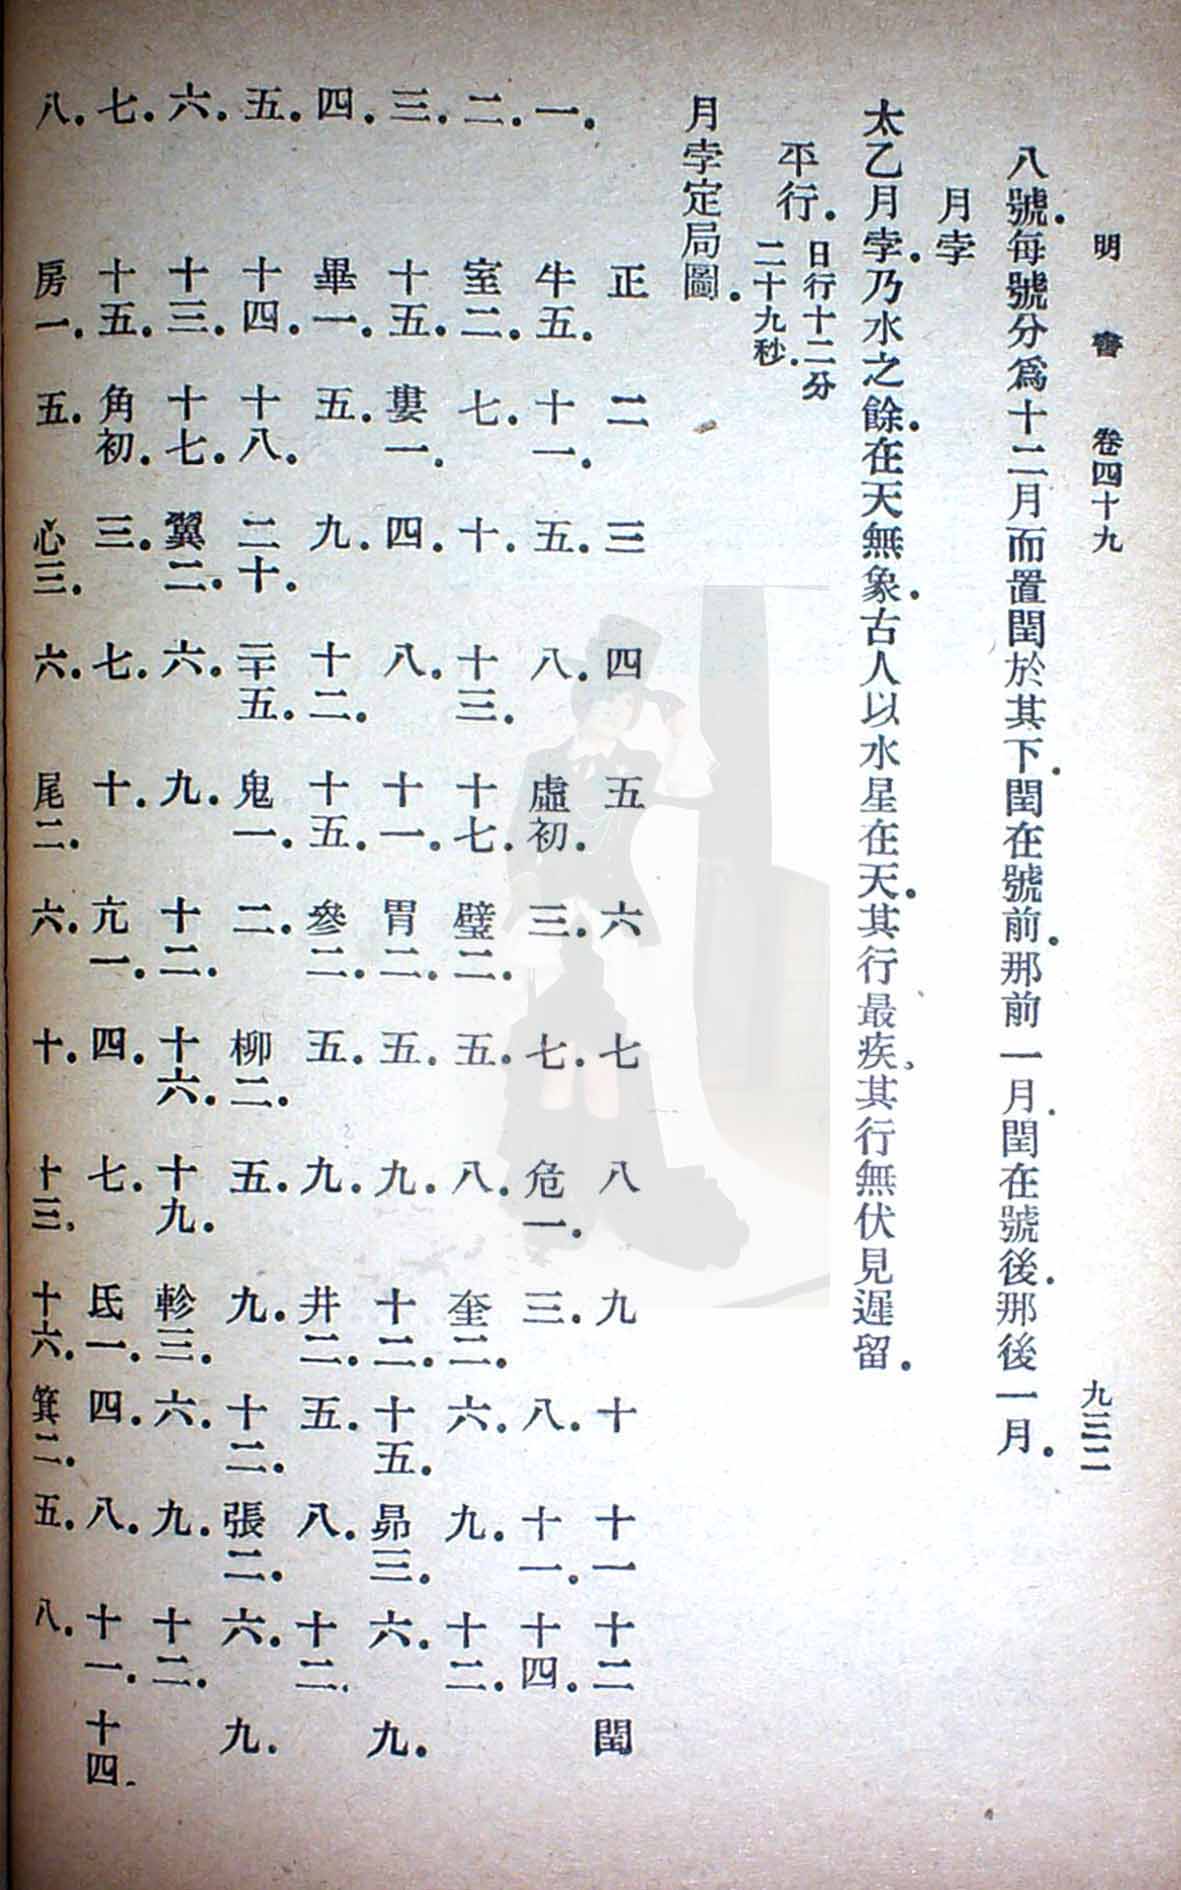 明 書 卷四十九 九三二
八號.每號分為十二月而置閏於其下.閏在號前.那前一月.閏在號後.那後一月.
月孛
太乙月孛.乃水之餘.在天無象.古人以水星在天.其行最疾.其行無伏見遲留.
平行.日行十二分
二十九秒.
月孛定局圖.
正 二 三 四 五 六 七 八 九 十 十一 十二 閏
一. 牛五. 十一. 五. 八. 虛初. 三. 七. 危一. 三. 八. 十一. 十四.
二. 室二. 七. 十. 十三. 十七. 璧二. 五. 八. 奎二. 六. 九. 十二.
三. 十五. 婁一. 四. 八. 十一. 胃二. 五. 九. 十二. 十五. 昴三. 六. 九.
四. 畢一. 五. 九. 十二. 十五. 參二. 五. 九. 井二. 五. 八. 十二.
五. 十四. 十八. 二十. 二十五. 鬼一. 二. 柳二. 五. 九. 十二. 張二. 六. 九.
六. 十三. 十七. 翼二. 六. 九. 十二. 十六. 十九. 軫三. 六. 九. 十二.
七. 十五. 角初. 三. 七. 十. 亢一. 四. 七. 氐一. 四. 八. 十一. 十四.
八. 房一. 五. 心三. 六. 尾二. 六. 十. 十三. 十六. 箕二. 五. 八.